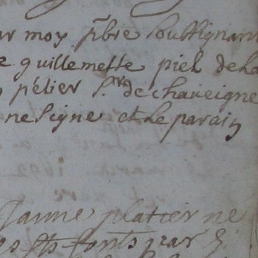 moy pbre soussignant
guillemette piel de la
pelier sr de chaveigne
ne signe et le parain
Janne platier ne
sts fonts par